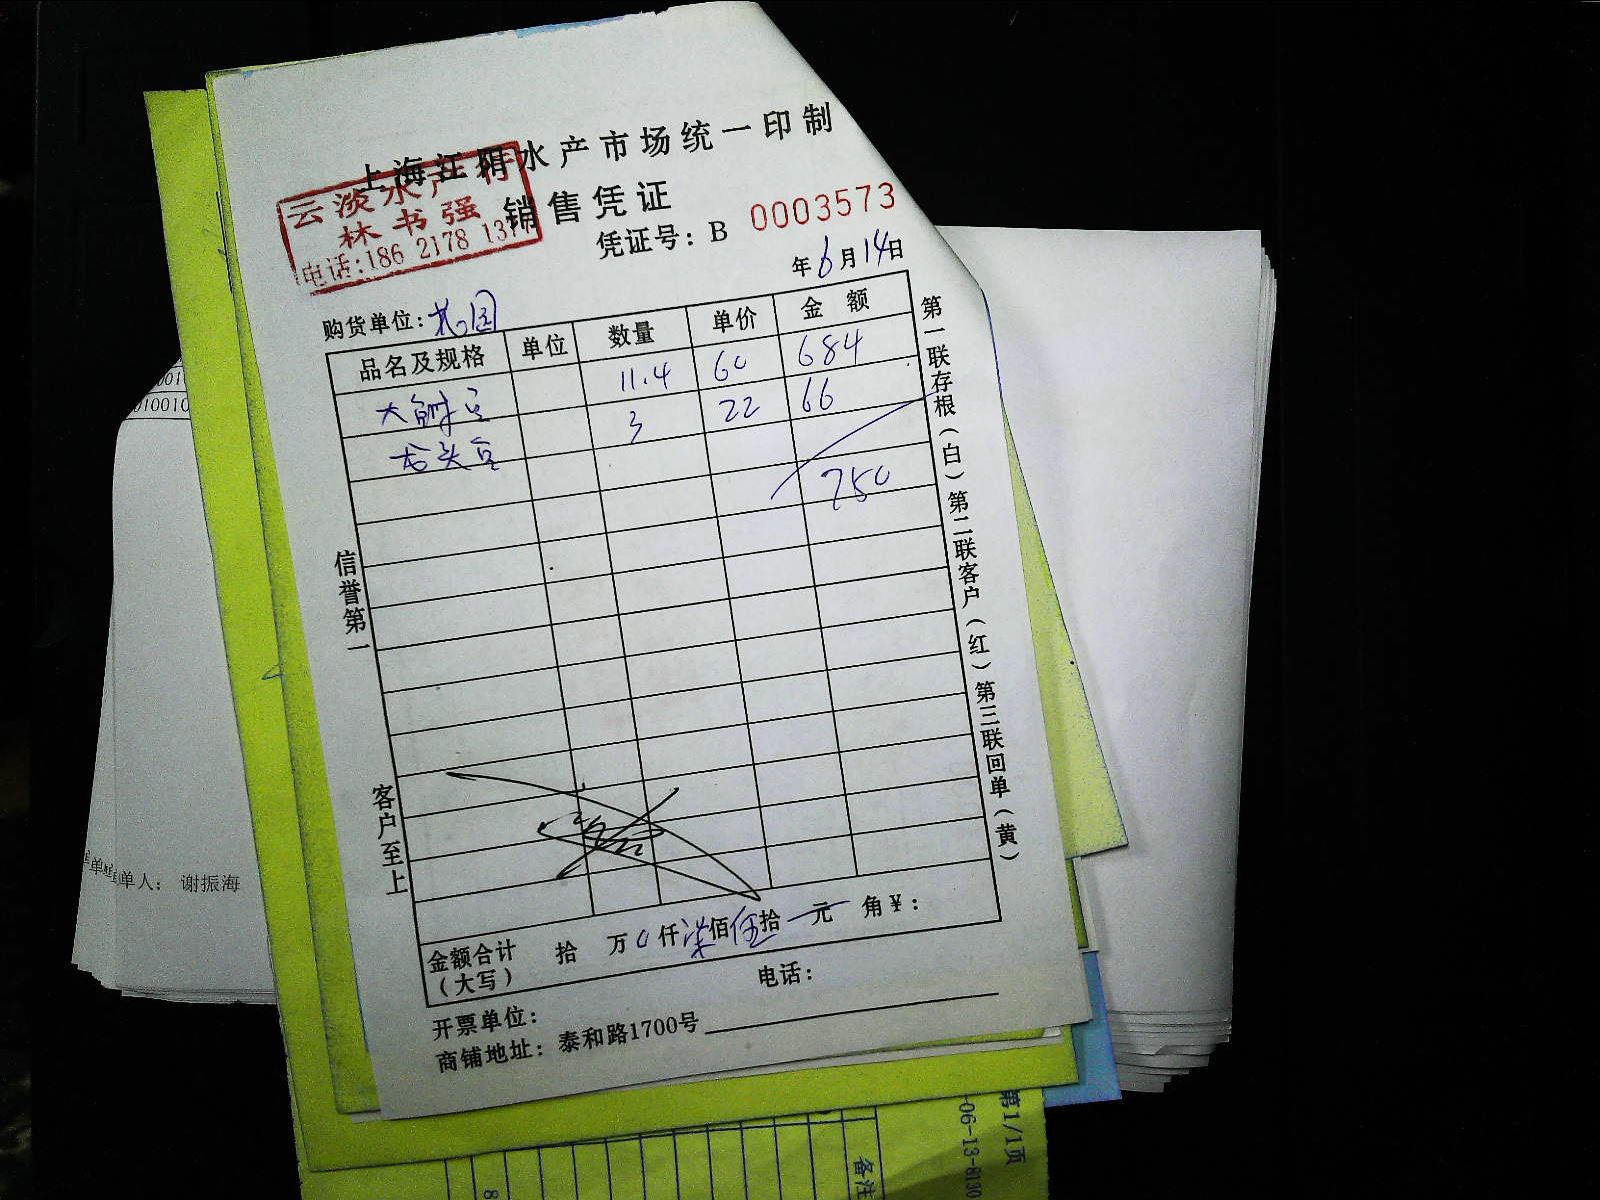 上海江阳水产市场统一印制
云淡水产行
林书强
电话:186 2178 13
销售凭证
凭证号：B 0003573
年6月14日
购货单位：
品名及规格 单位 数量 单价 金额
大 11.4 60 684
龙头 3 22 66
750
信誉第一
客户至上
第一联存根（白）第二联客户（红）第三联回单（黄）
金额合计（大写） 拾 万0仟柒佰伍拾一元 角￥：
开票单位： 电话：
商铺地址：泰和路1700号
单人： 谢振海
010010
第1/1页
-06-13-8130
备注